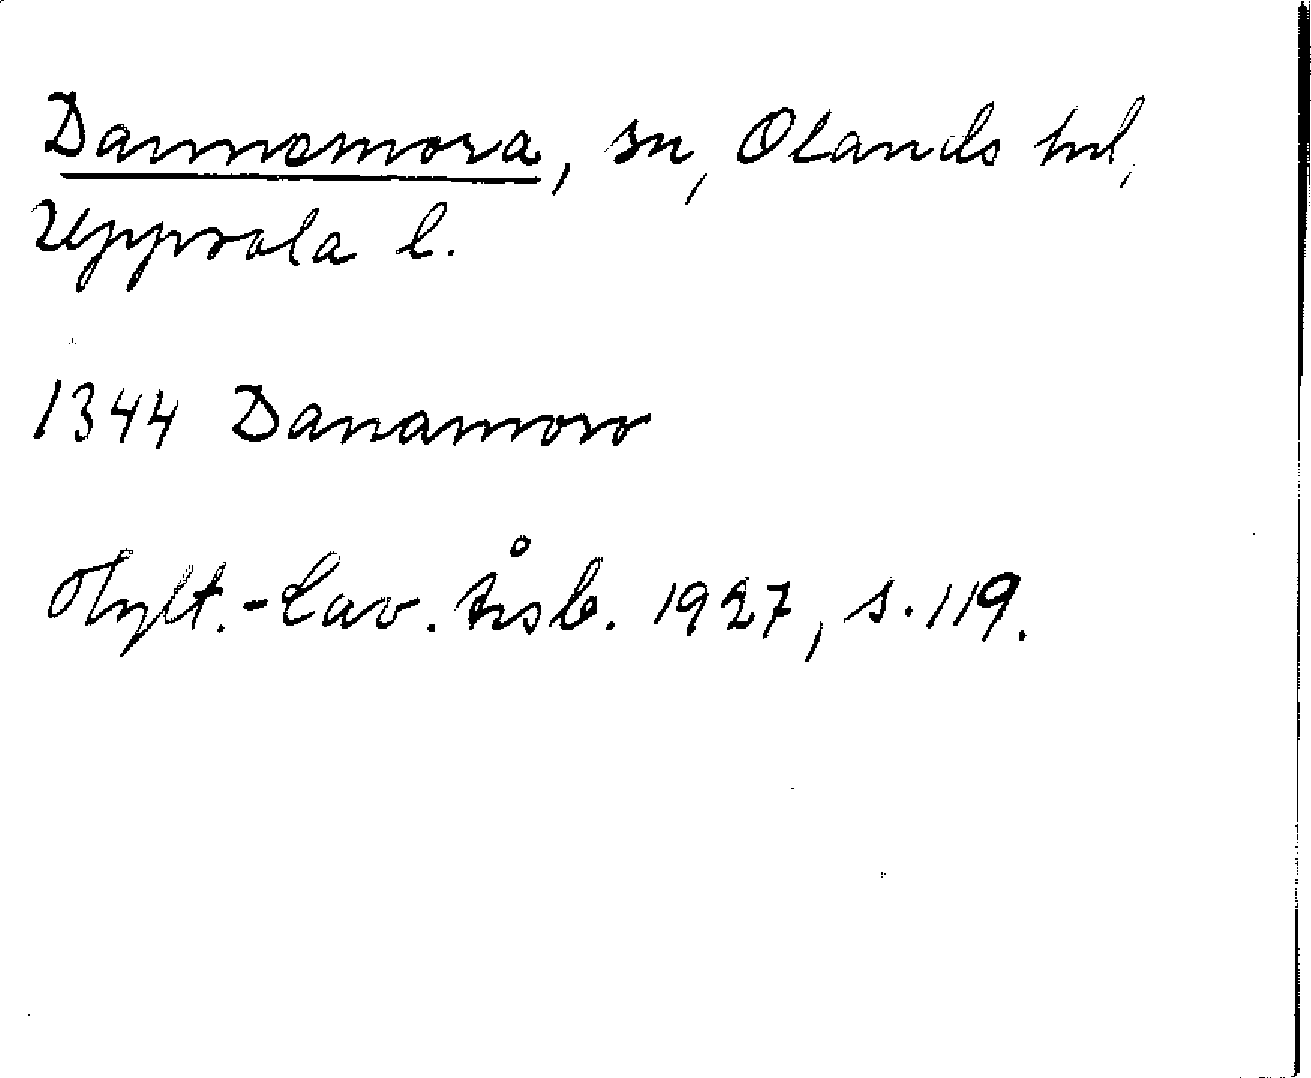 Dannemora, sn, Olands hd,
Uppsala l.
1344 Danamoro
Hylt.-Cav. Årsb. 1927, s. 119.